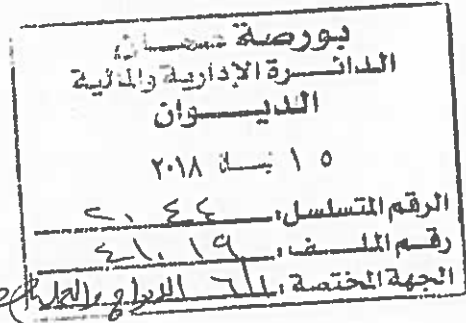 بورصة عمان
الدائرة الإدارية والمالية
الديوان
١٥ نيسان ٢٠١٨
الرقم المتسلسل: ٢٠٤٤
رقم الملف: ٤١٠١٩
الجهة المختصة: الادراج